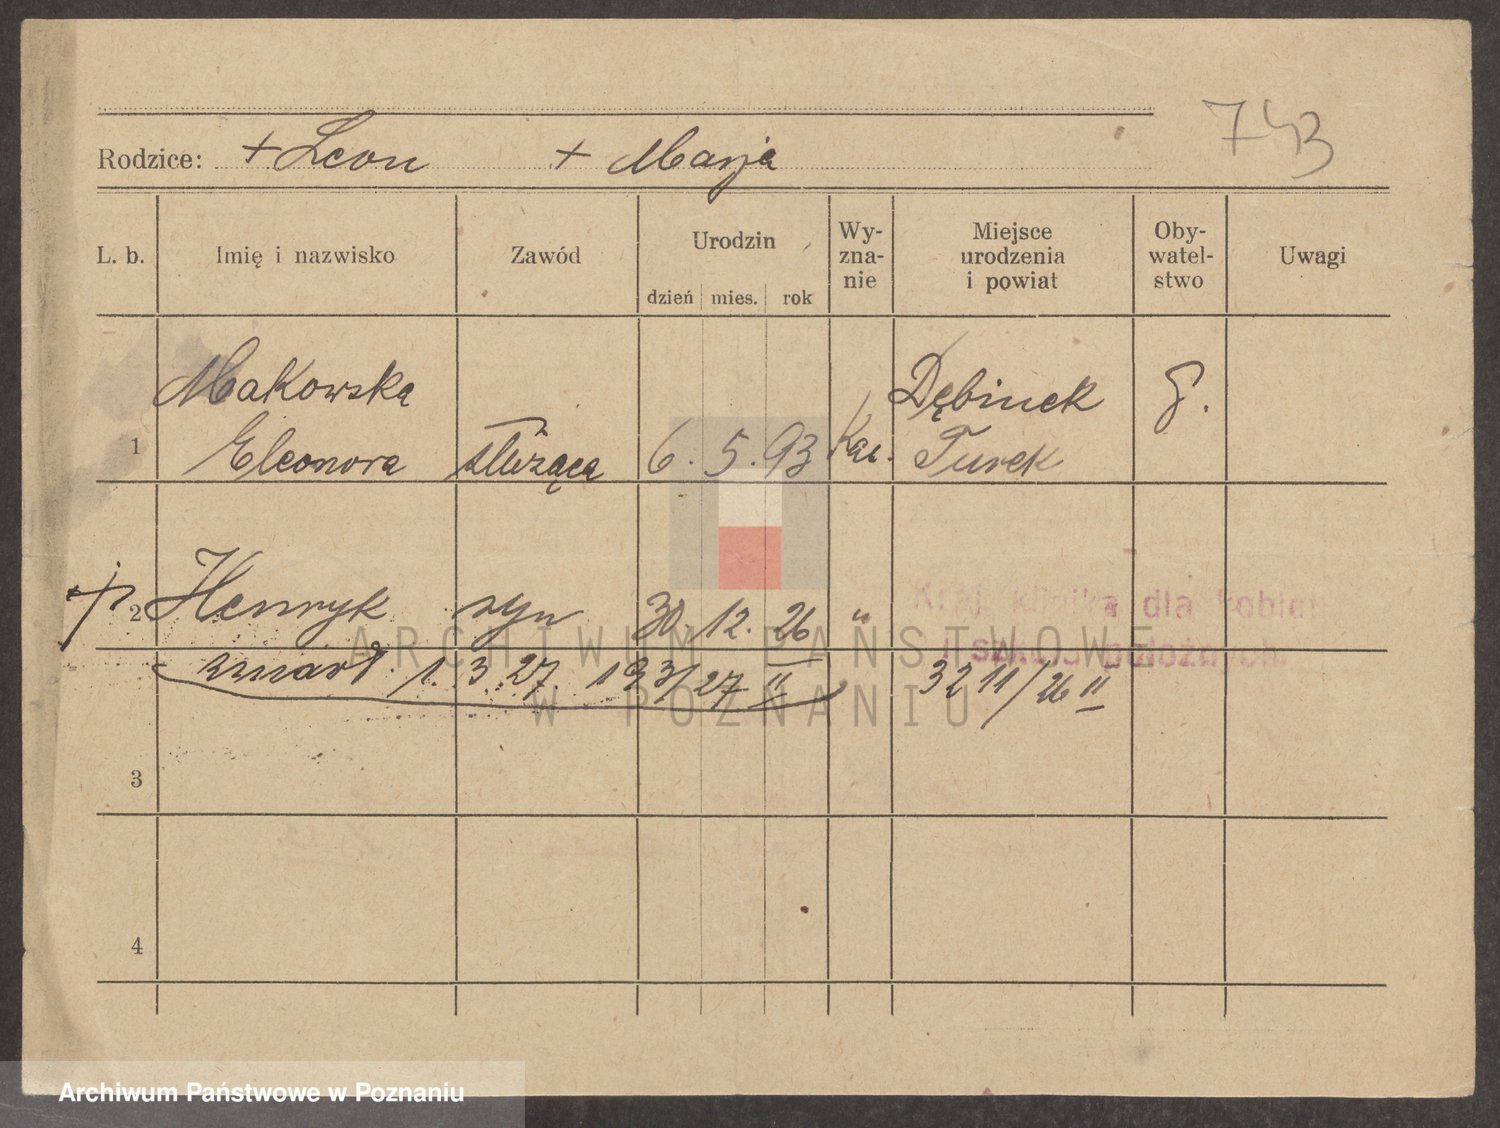 743
Rodzice: + Leon + Marja
L. b. Imię i nazwisko Zawód Urodzin dzień mies. rok Wy-zna-nie Miejsce urodzenia i powiat Oby-watel-stwo Uwagi
Makowska Dębinek
1 Eleonora służąca 6. 5. 93 Turek
+ 2 Henryk syn 30. 12. 26 "
Kraj. klinika dla kobiet
i szkoła położnych.
zmarł 1. 3. 27 193/27 II 3211/26 II
3
4
ARCHIWUM PAŃSTWOWE
W POZNANIU
Archiwum Państwowe w Poznaniu